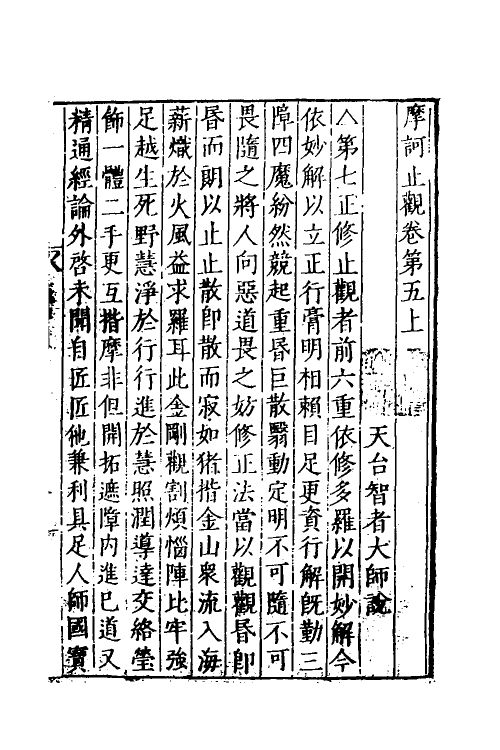 摩訶止觀卷第五上
天台智者大師說
△第七正修止觀者前六重依修多羅以開妙解今
依妙解以立正行膏明相賴目足更資行解旣勤三
障四魔紛然競起重昏巨散翳動定明不可隨不可
畏隨之將人向惡道畏之妨修正法當以觀觀昏卽
昏而朗以止止散卽散而寂如猪揩金山衆流入海
薪熾於火風益求羅耳此金剛觀割煩惱陣此牢強
足越生死野慧淨於行行進於慧照潤導達交絡瑩
飾一體二手更互揩摩非但開拓遮障內進已道又
精通經論外啓未聞自匠匠他兼利具足人師國寶